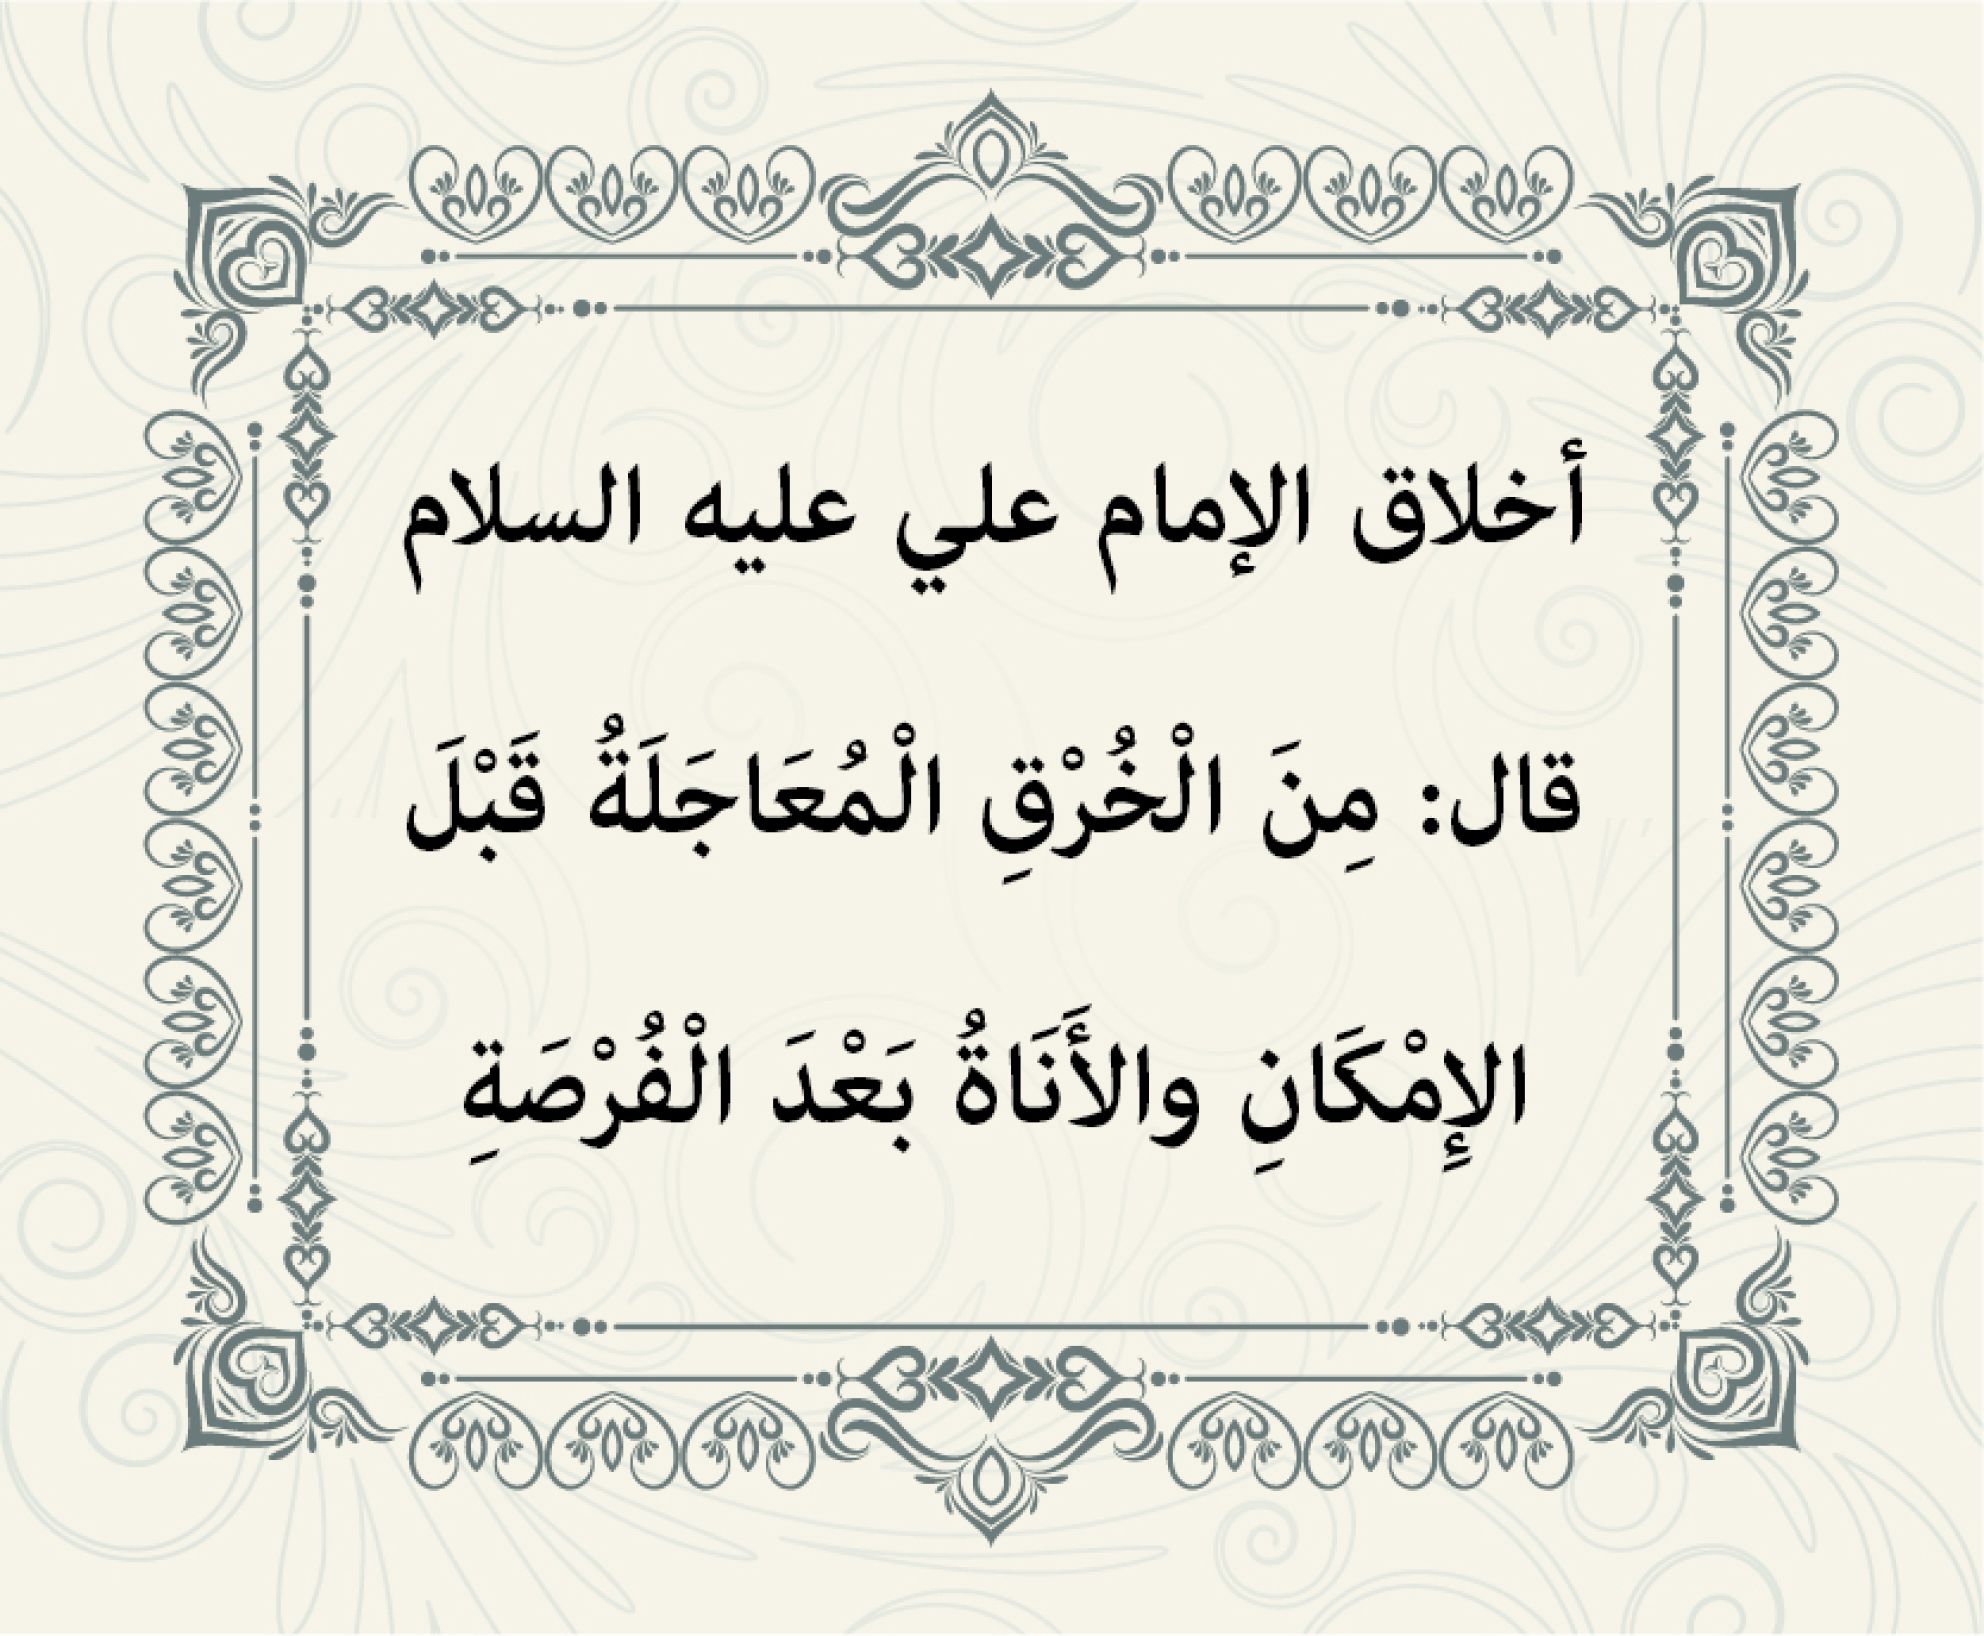 أخلاق الإمام علي عليه السلام
قال: مِنَ الْخُرْقِ الْمُعَاجَلَةُ قَبْلَ
الإِمْكَانِ والأَنَاةُ بَعْدَ الْفُرْصَةِ